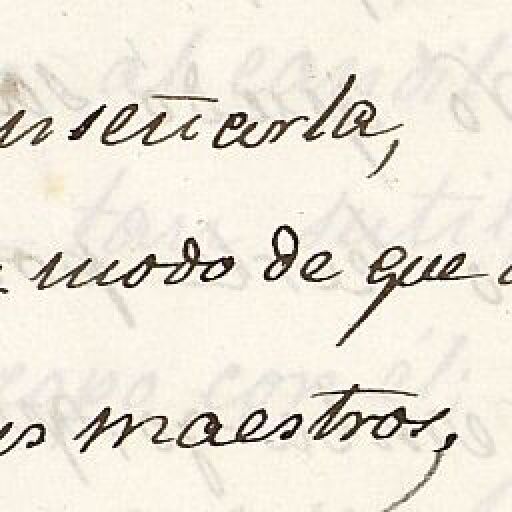 enseñarla,
modo de que
maestros,